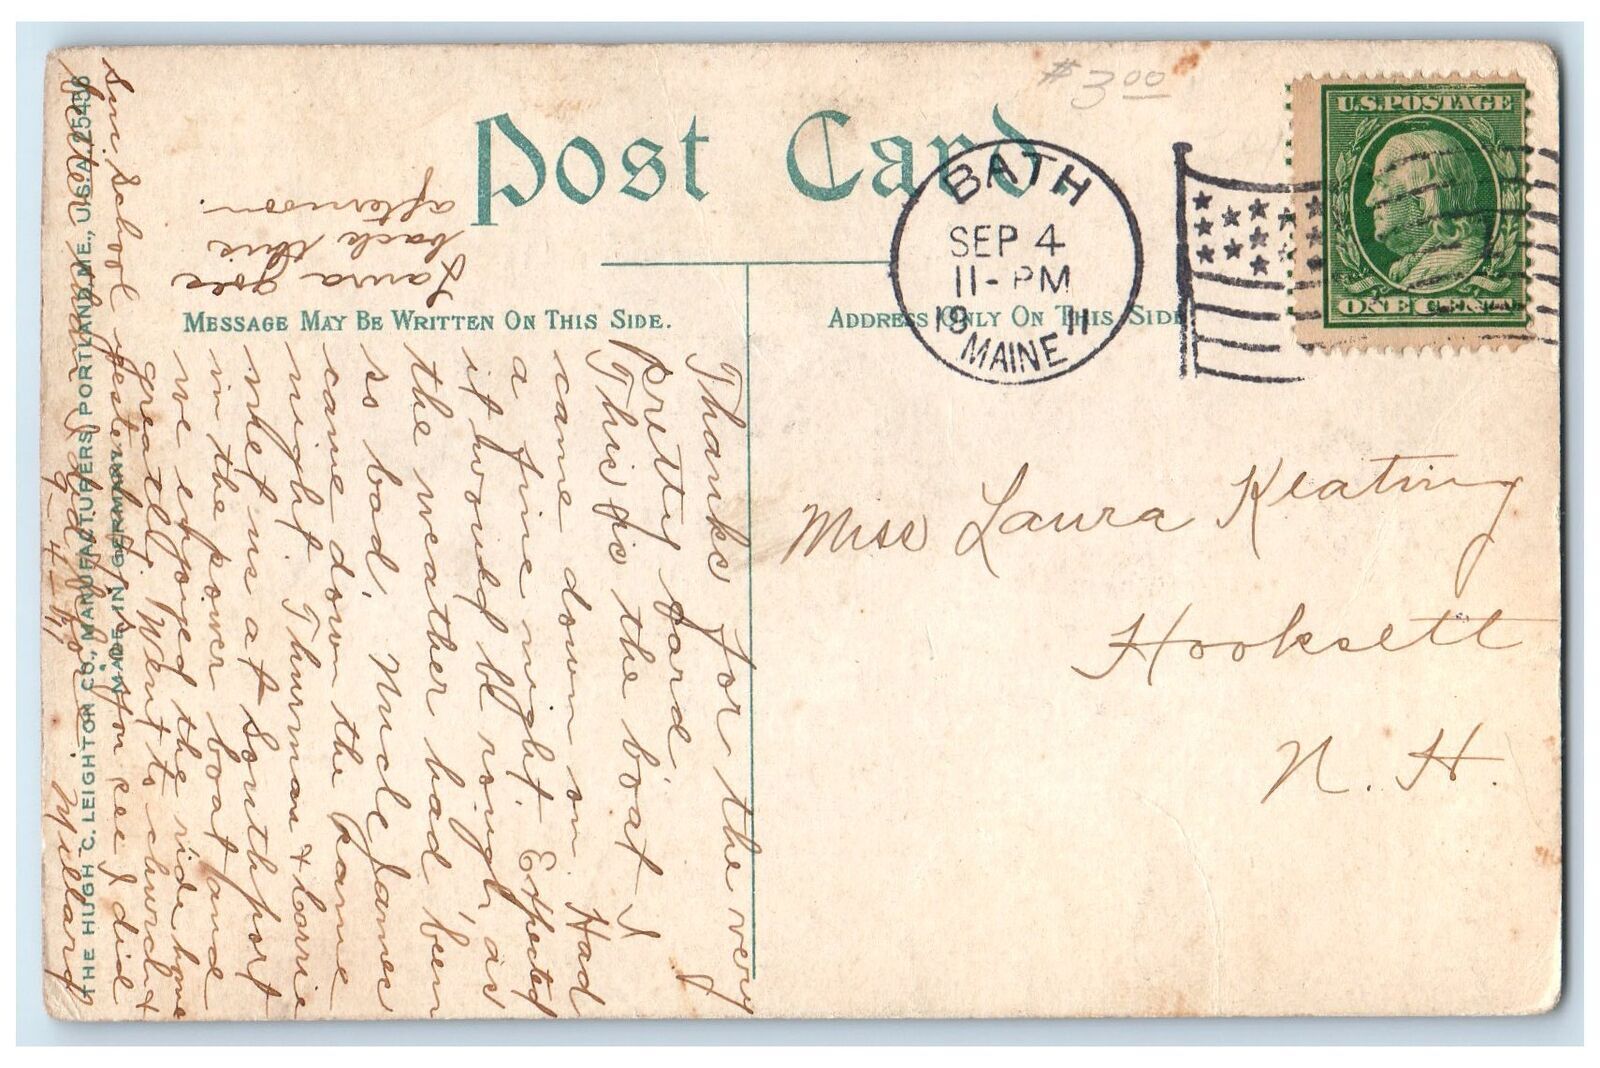 $3.00
Post Card
U.S. POSTAGE
ONE CENT
BATH
SEP 4
11-PM
1911
MAINE
MESSAGE MAY BE WRITTEN ON THIS SIDE.
ADDRESS ONLY ON THIS SIDE
Miss Laura Keating
Hooksett
N. H.
Thanks for the very
pretty card.
This is the boat I
came down on. Had
a fine night. Expected
it would be rough as
the weather had been
so bad. Uncle James
came down the same
night. Thurman & Carrie
met us at Southport
in the power boat and
we enjoyed the ride home
greatly. Went to church &
Sun. School yesterday so you see I did
better than I did before. Millard
9-4-'11
Laura goes
back this
afternoon.
THE HUGH C. LEIGHTON CO., MANUFACTURERS, PORTLAND, ME., U.S.A. 25436
MADE IN GERMANY